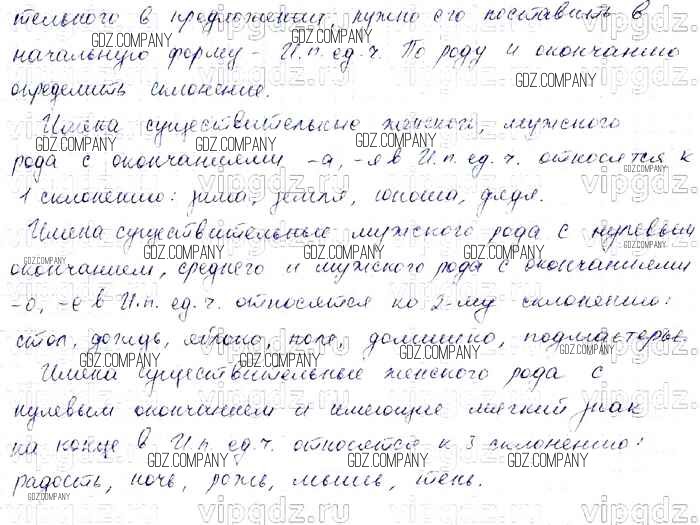 тельного в предложении, нужно его поставить в
начальную форму - И.п. ед.ч. По роду и окончанию
определить склонение.
Имена существительные женского, мужского
рода с окончаниями -а, -я в И.п. ед.ч. относятся к
1 склонению: зима, земля, юноша, дядя.
Имена существительные мужского рода с нулевым
окончанием, среднего и мужского рода с окончаниями
-о, -е в И.п. ед.ч. относятся ко 2-му склонению:
стол, дождь, яблоко, поле, домишко, подмастерье.
Имена существительные женского рода с
нулевым окончанием и имеющие мягкий знак
на конце в И.п. ед.ч. относятся к 3 склонению:
радость, ночь, рожь, мышь, тень.